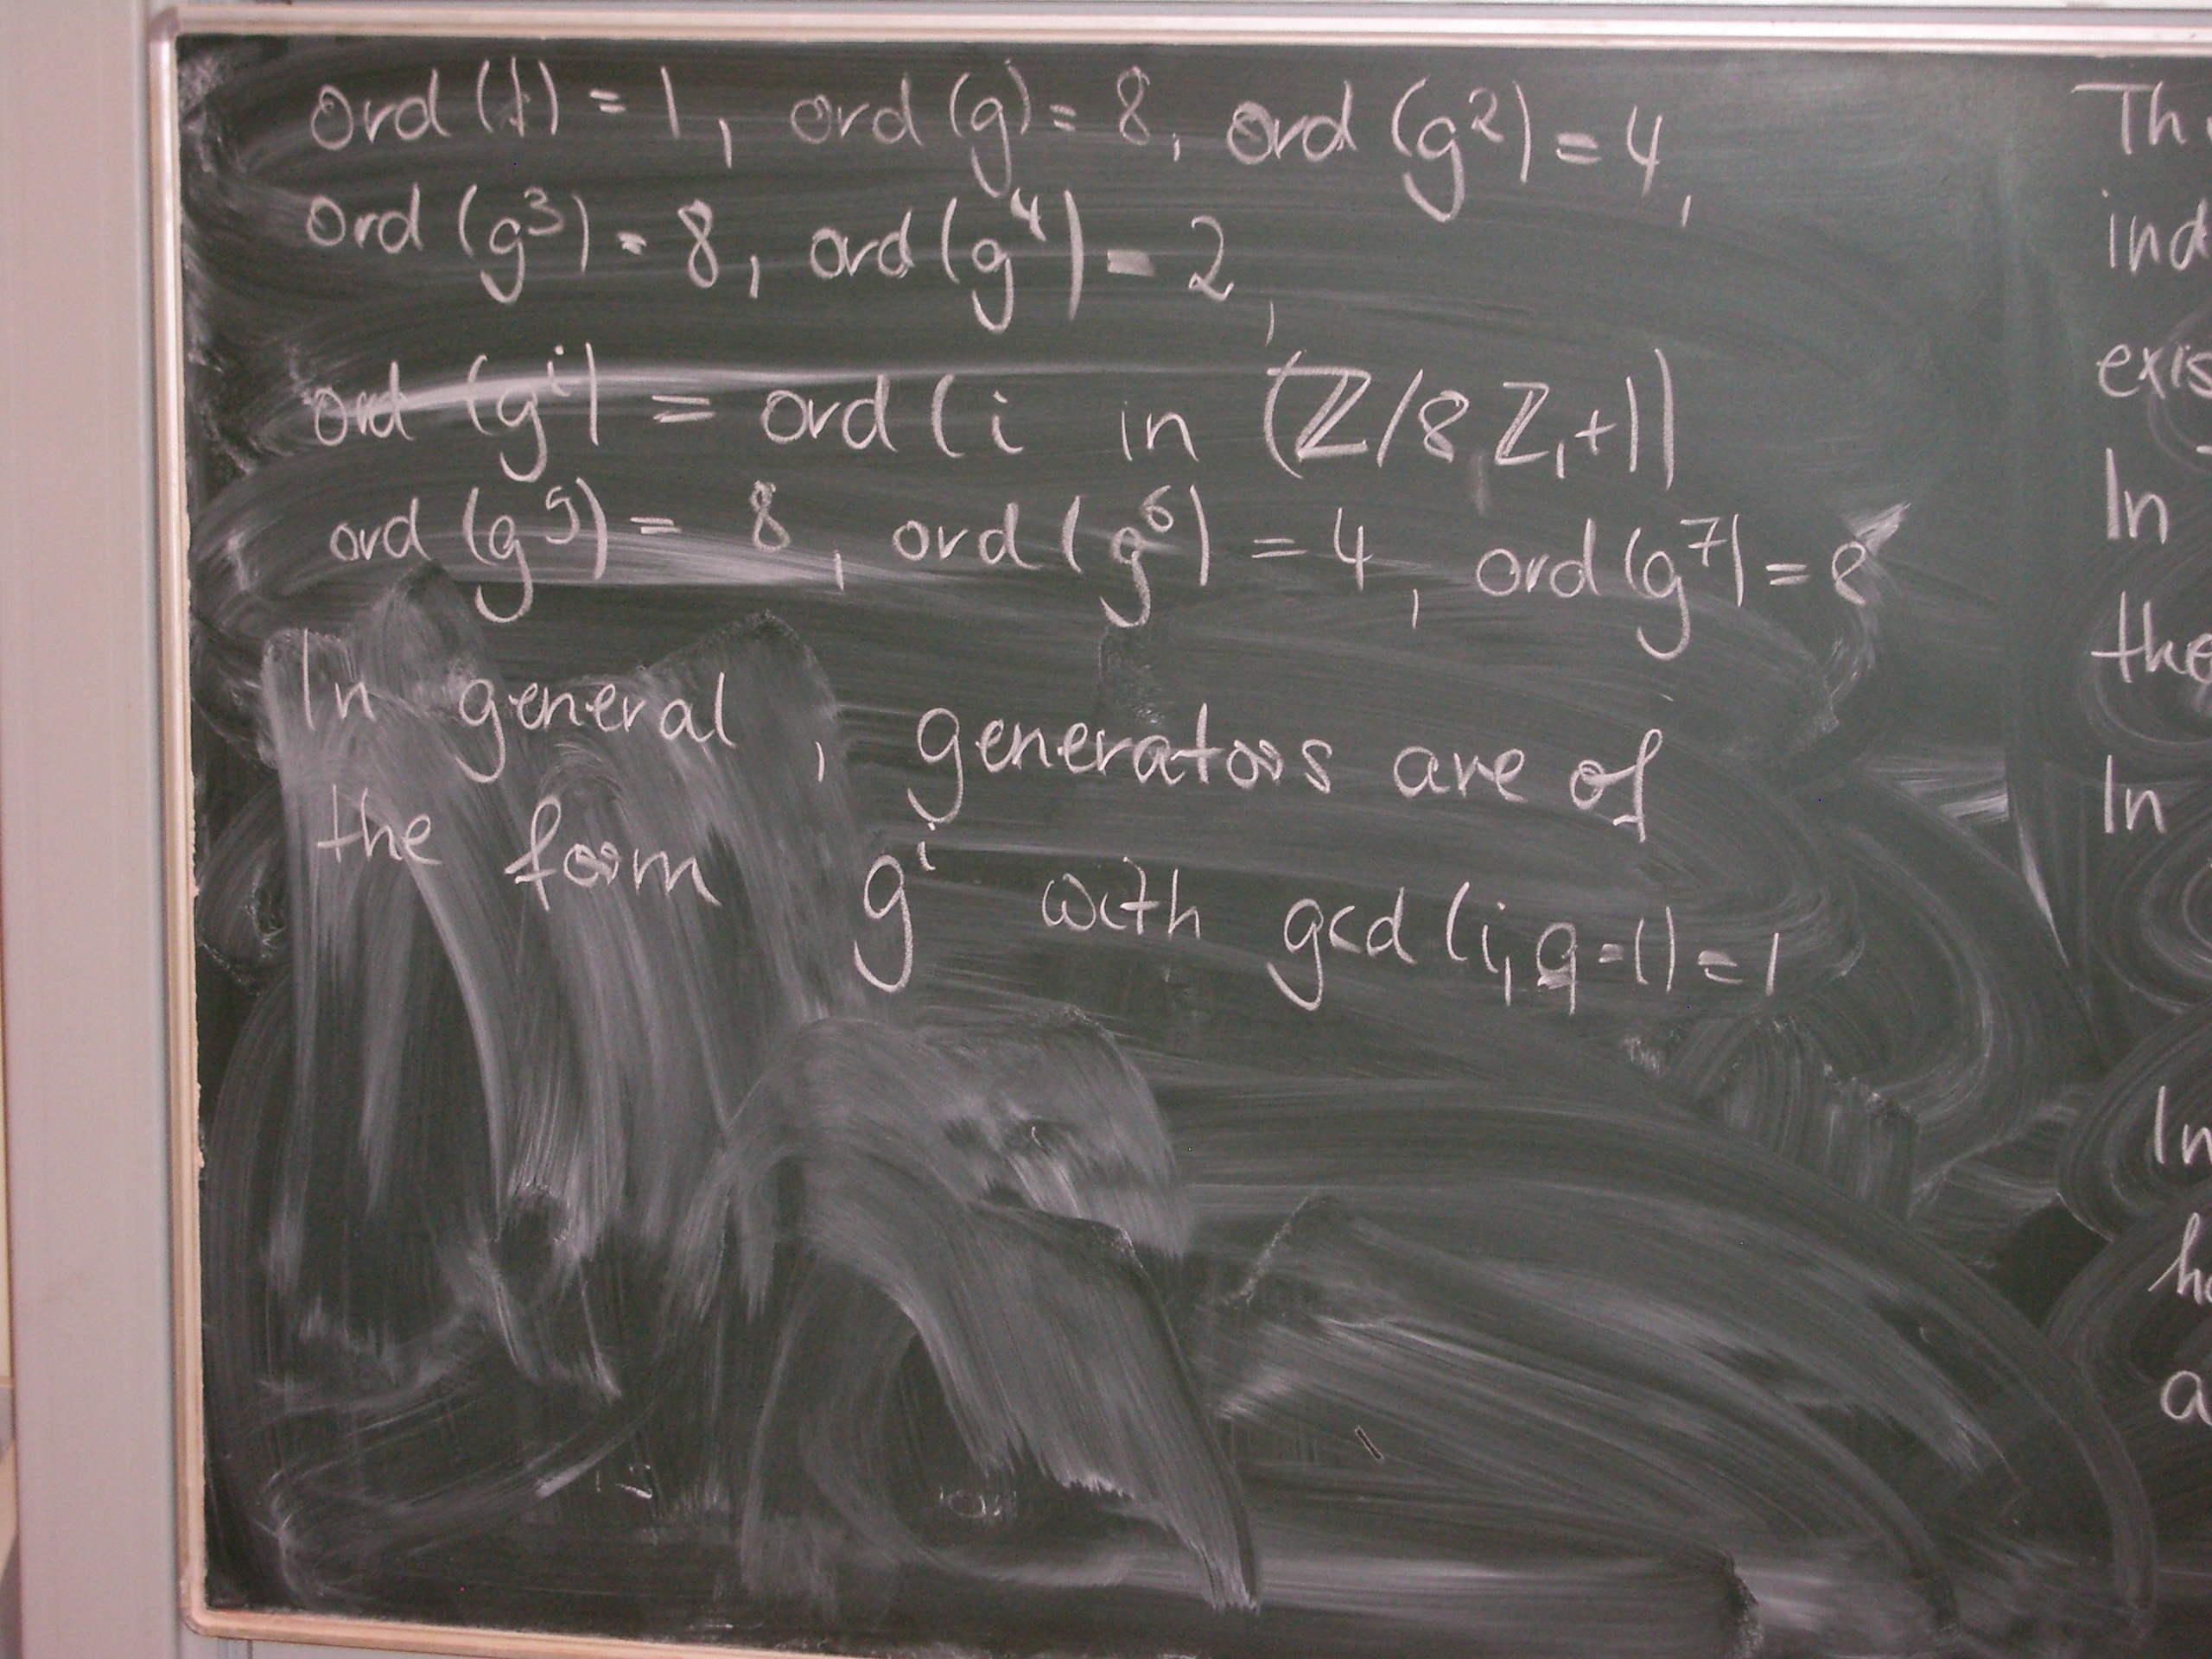 ord (1) = 1, ord (g) = 8, ord (g²) = 4,
ord (g³) = 8, ord (g⁴) = 2,
ord (gⁱ) = ord (i in (ℤ/8ℤ,+))
ord (g⁵) = 8, ord (g⁶) = 4, ord (g⁷) = 8
In general, generators are of
the form gⁱ with gcd (i, q-1) = 1
In
the
In
In
a